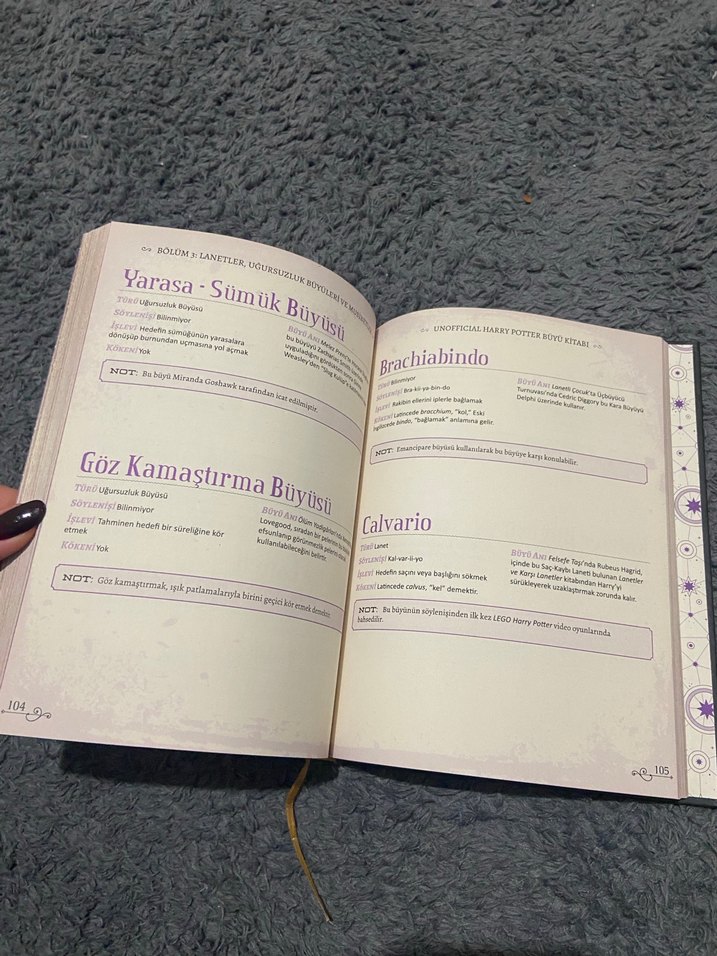 BÖLÜM 3: LANETLER, UĞURSUZLUK BÜYÜLERİ VE
Yarasa - Sümük Büyüsü
TÜRÜ Uğursuzluk Büyüsü
SÖYLENİŞİ Bilinmiyor
İŞLEVİ Hedefin sümüğünün yarasalara
dönüşüp burnundan uçmasına yol açmak
KÖKENİ Yok
BÜYÜ ANI Melez Prens'te
bu büyüyü Zacharias Smith üzerinde
uyguladığını gördükten sonra
Weasley'den "Slug Kulüp"e
NOT: Bu büyü Miranda Goshawk tarafından icat edilmiştir.
Göz Kamaştırma Büyüsü
TÜRÜ Uğursuzluk Büyüsü
SÖYLENİŞİ Bilinmiyor
İŞLEVİ Tahminen hedefi bir süreliğine kör
etmek
KÖKENİ Yok
BÜYÜ ANI Ölüm Yadigârları'nda
Lovegood, sıradan bir pelerinin
efsunlanıp görünmezlik pelerini olarak
kullanılabileceğini belirtir.
NOT: Göz kamaştırmak, ışık patlamalarıyla birini geçici kör etmek demektir.
104
UNOFFICIAL HARRY POTTER BÜYÜ KİTABI
Brachiabindo
TÜRÜ Bilinmiyor
SÖYLENİŞİ Bra-kii-ya-bin-do
İŞLEVİ Rakibin ellerini iplerle bağlamak
KÖKENİ Latincede bracchium, "kol," Eski
İngilizcede bindo, "bağlamak" anlamına gelir.
BÜYÜ ANI Lanetli Çocuk'ta Üçbüyücü
Turnuvası'nda Cedric Diggory bu Kara Büyüyü
Delphi üzerinde kullanır.
NOT: Emancipare büyüsü kullanılarak bu büyüye karşı konulabilir.
Calvario
TÜRÜ Lanet
SÖYLENİŞİ Kal-var-ii-yo
İŞLEVİ Hedefin saçını veya başlığını sökmek
KÖKENİ Latincede calvus, "kel" demektir.
BÜYÜ ANI Felsefe Taşı'nda Rubeus Hagrid,
içinde bu Saç-Kaybı Laneti bulunan Lanetler
ve Karşı Lanetler kitabından Harry'yi
sürükleyerek uzaklaştırmak zorunda kalır.
NOT: Bu büyünün söylenişinden ilk kez LEGO Harry Potter video oyunlarında
bahsedilir.
105